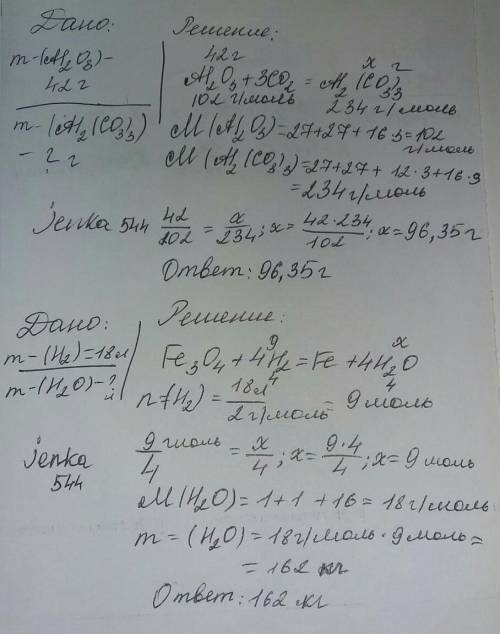 Дано:
m-(Al2O3)-
42 г
m-(Al2(CO3)3
- ? г
Решение:
42 г x г
Al2O3+3CO2 = Al2(CO3)3
102 г/моль 234 г/моль
M(Al2O3)=27+27+16·3=102
г/моль
M(Al2(CO3)3=27+27+12·3+16·9
=234г/моль
jenka 544 42/102 = x/234; x= 42·234/102; x=96,35г
Ответ: 96,35г
Дано:
m-(H2)=18г
m-(H2O)-?
Решение:
9 x
Fe3O4+4H2=Fe+4H2O
4 4
n=(H2) = 18г/2г/моль = 9 моль
jenka
544
9 моль/4 = x/4; x= 9·4/4; x=9 моль
M(H2O)=1+1+16=18г/моль
m=(H2O)=18г/моль·9моль=
=162 кг
Ответ: 162 кг